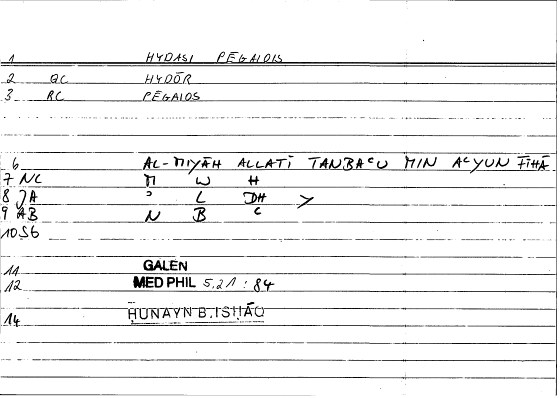 1 HYDASI PĒGAIOIS
2 QC HYDŌR
3 RC PĒGAIOS
6 AL-MIYĀH ALLATĪ TANBAᶜU MIN AᶜYUN FĪHĀ
7 NL M W H
8 JA ᵓ L DH >
9 AB N B ᶜ
10 SG
11 GALEN
12 MED PHIL 5,21 : 84
14 ḤUNAYN B. ISḤĀQ